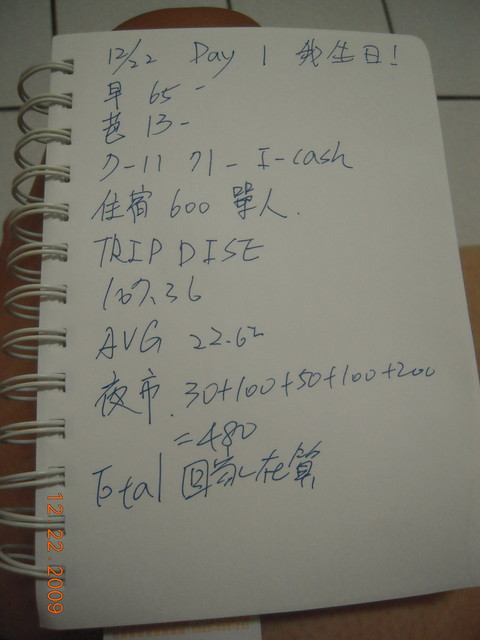 12/22 Day 1 我生日!
早 65-
芭 13-
7-11 71- I-cash
住宿 600 單人.
TRIP DISE
107.36
AVG 22.62
夜市. 30+100+50+100+200
=480
Total 回家在算
12.22.2009